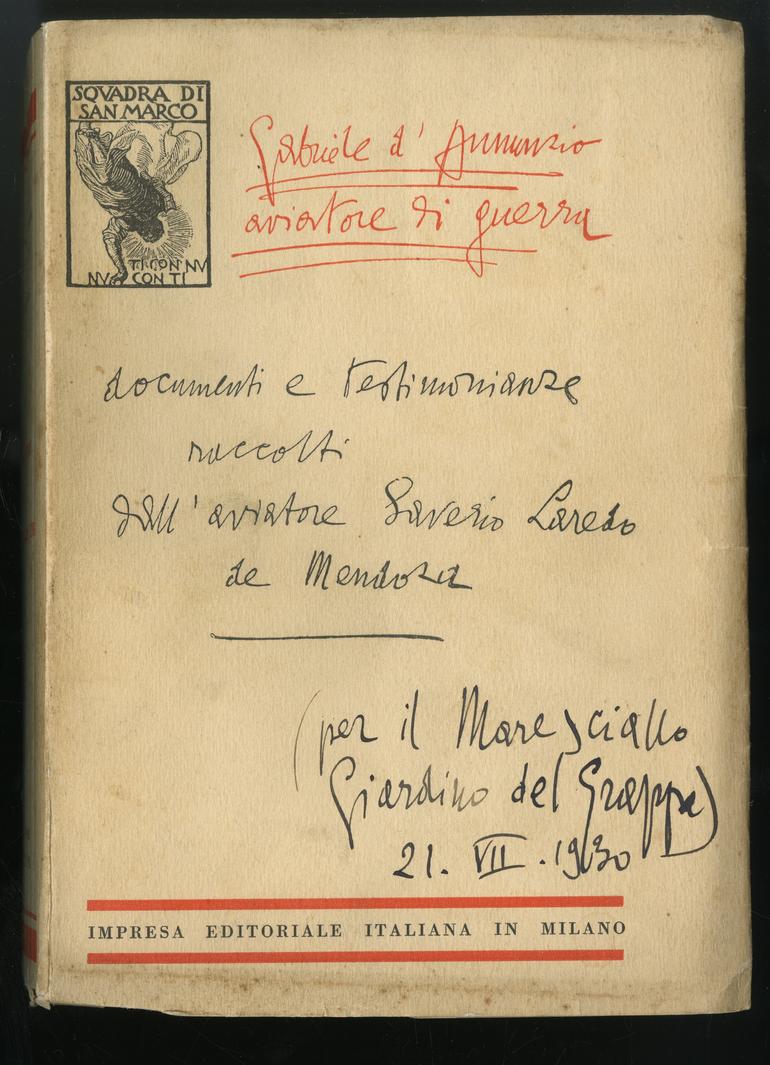 SQVADRA DI
SAN MARCO
TI CON NV
NV CON TI
Gabriele d'Annunzio
aviatore di guerra
documenti e testimonianze
raccolti
dall'aviatore Saverio Laredo
de Mendoza
(per il Maresciallo
Giardino del Grappa)
21. VII. 1930
IMPRESA EDITORIALE ITALIANA IN MILANO